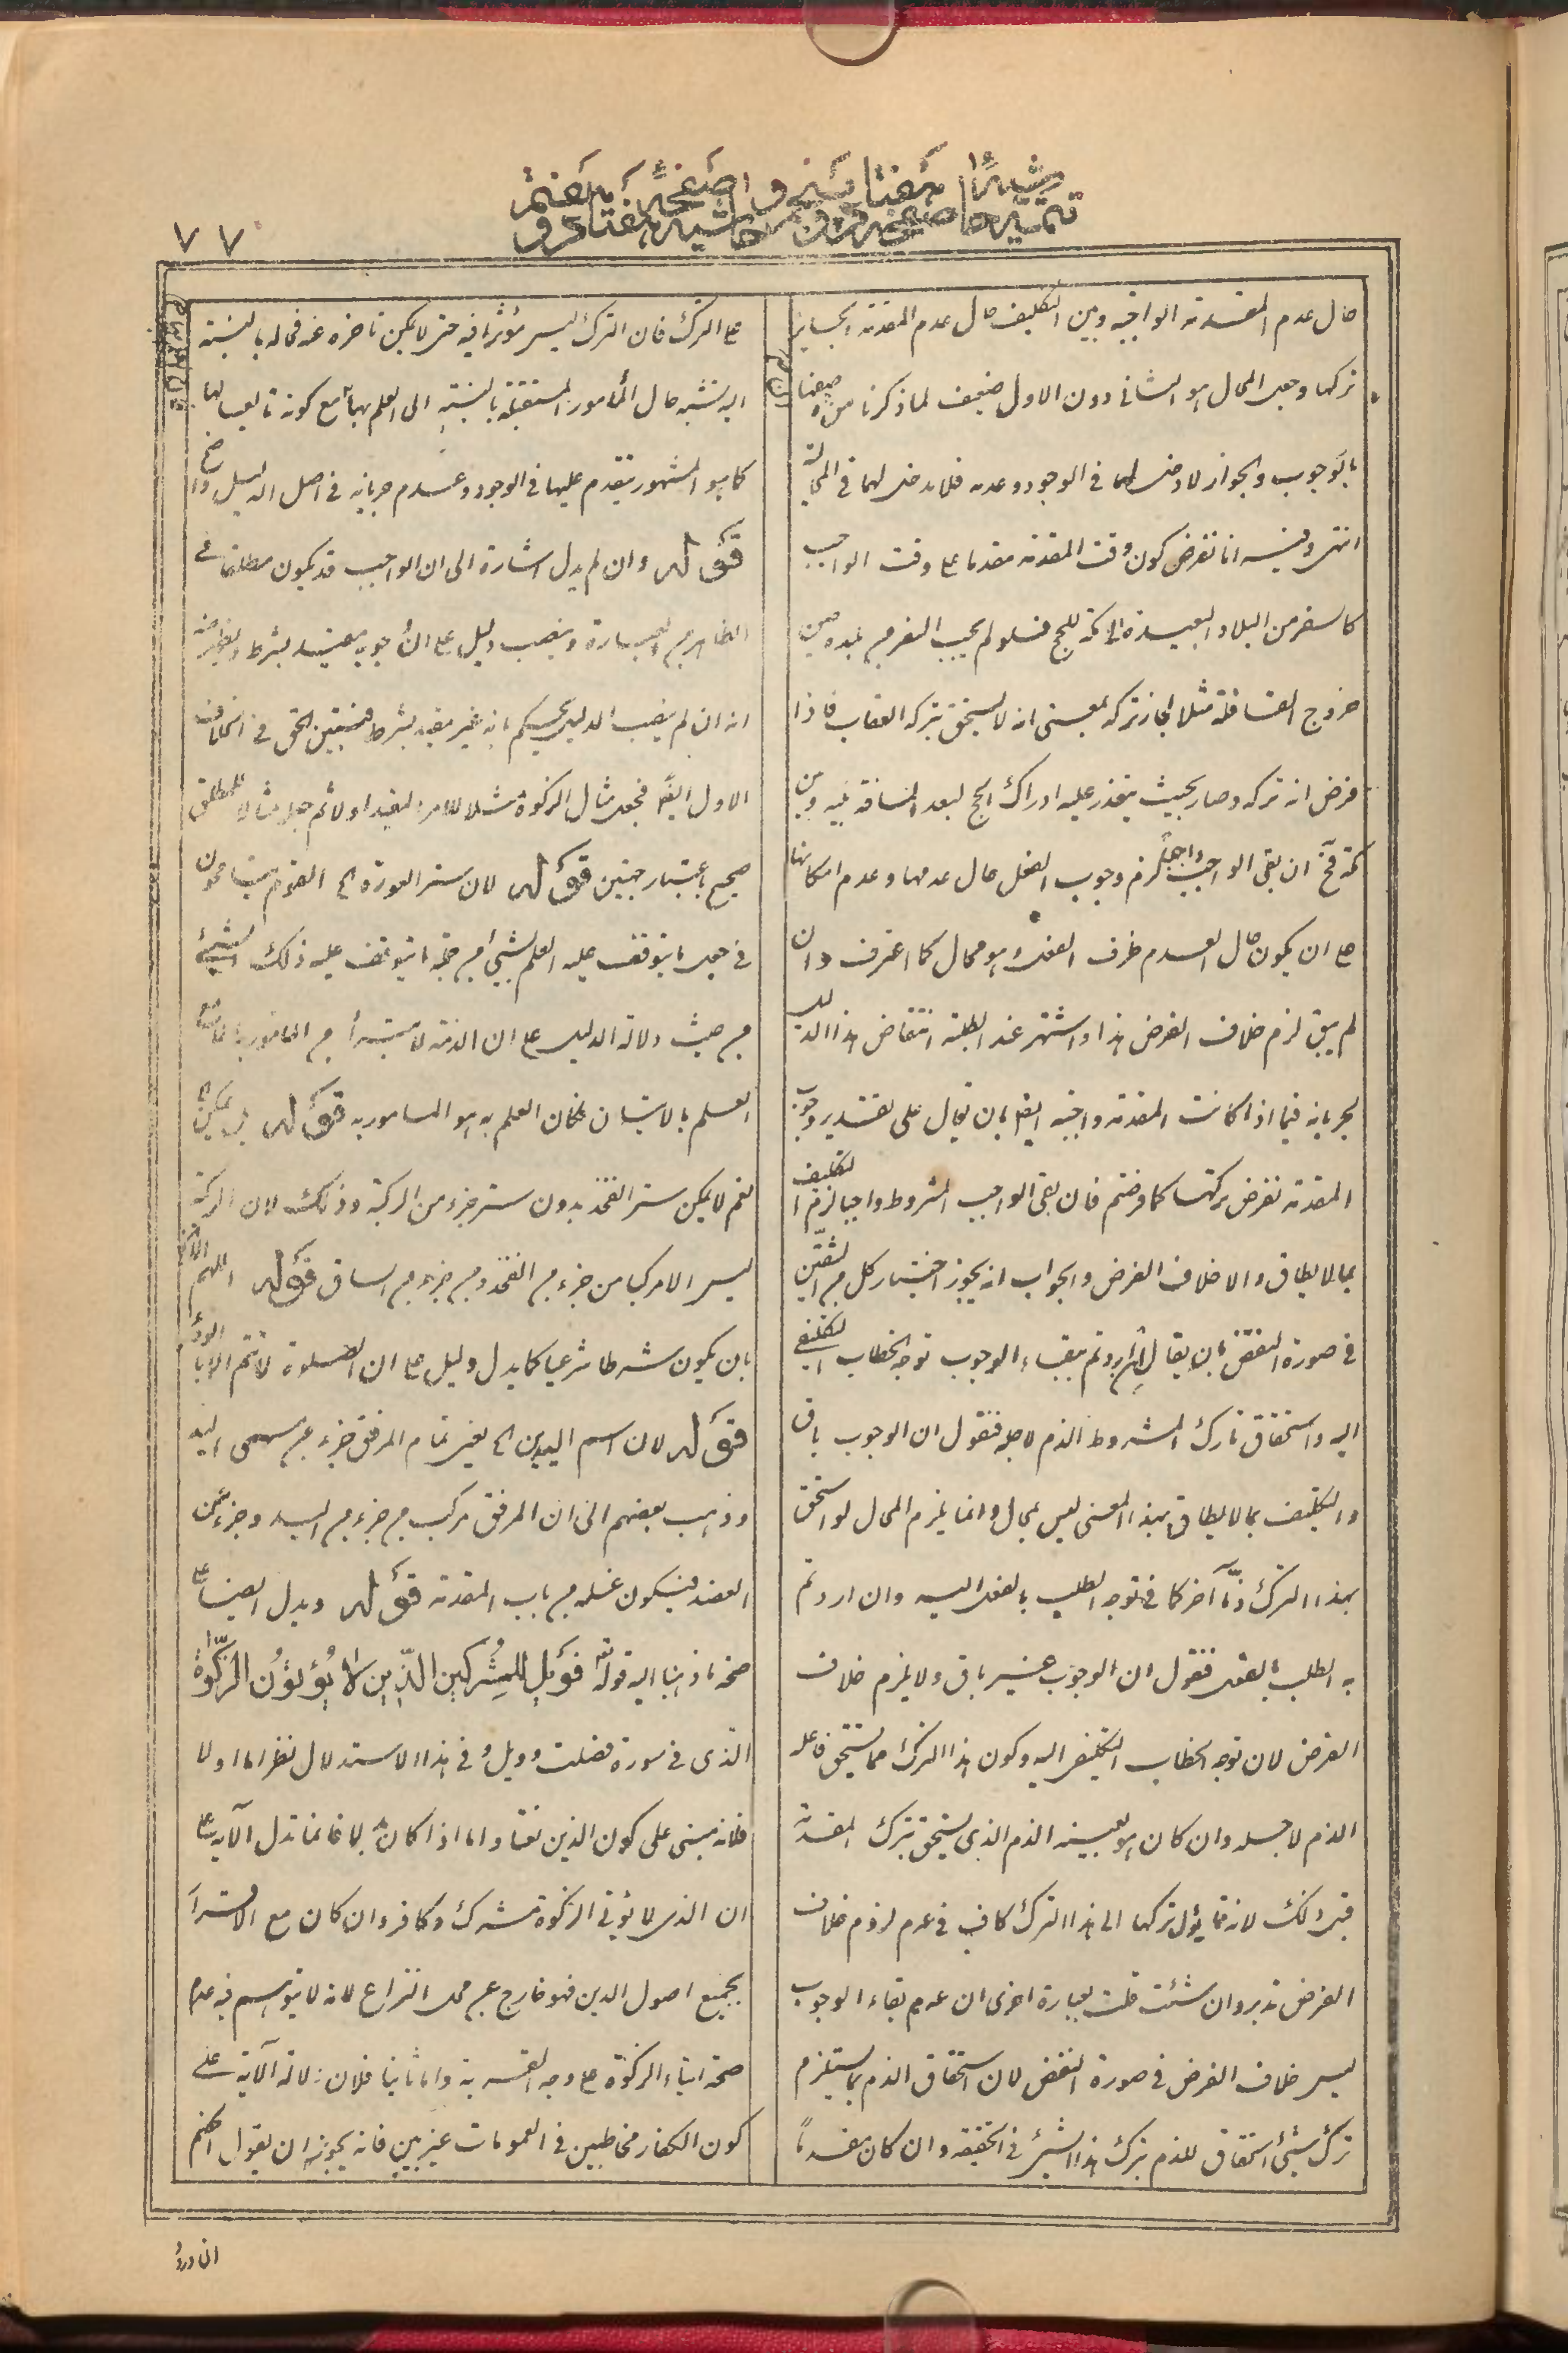 ٧٧
حال عدم المقدمة الواجبة وبين التكليف حال عدم المقدمة الجايز
تركها وجعل المحال هو الثانى دون الاول ضعيف لما ذكرنا من وصفها
بالوجوب والجواز لا دخل لهما فى الوجود وعدمه فلا مدخل لهما فى المحالية
انتهى وفيه انا نفرض كون وقت المقدمة مقدما على وقت الواجب
كالسفر من البلاد البعيدة الى مكة للحج فلو لم يجب السفر من بلده حين
خروج القافلة مثلا لجاز تركه بمعنى انه لا يستحق بتركه العقاب فاذا
فرض انه تركه وصار بحيث يتعذر عليه ادراك الحج لبعد المسافة بينه وبين
مكة فح ان بقى الواجب واجبا لزم وجوب الفعل حال عدمها وعدم امكانها
على ان يكون حال العدم ظرف الفعل وهو محال كما اعترف وان
لم يبق لزم خلاف الفرض هذا واشتهر عند الطلبة انتقاض هذا الدليل
بجريانه فيما اذا كانت المقدمة واجبة ايضا بان يقال على تقدير وجوب
المقدمة نفرض تركها كما فرضتم فان بقى الواجب المشروط واجبا لزم التكليف
بما لا يطاق والا خلاف الفرض والجواب انه يجوز اختيار كل من الشقين
فى صورة النقض بان يقال ان اردتم ببقاء الوجوب توجه الخطاب التكليفى
اليه واستحقاق تارك المشروط الذم لاجله فنقول ان الوجوب باق
والتكليف بما لا يطاق بهذا المعنى ليس بمحال وانما يلزم المحال لو استحق
بهذا الترك ذما آخر كما فى توجه الطلب بالفعل اليه وان اردتم
به الطلب بالفعل فنقول ان الوجوب غير باق ولا يلزم خلاف
الفرض لان توجه الخطاب التكليفى اليه وكون هذا الترك مما يستحق فاعله
الذم لاجله وان كان هو بعينه الذم الذى يستحق بترك المقدمة
قبل ذلك لانه مما يؤل تركها الى هذا الترك كاف فى عدم لزوم خلاف
الفرض تدبر وان شئت قلت بعبارة اخرى ان عدم بقاء الوجوب
ليس خلاف الفرض فى صورة النقض لان استحقاق الذم بما يستلزم
ترك شئ استحقاق للذم بترك هذا الشئ فى الحقيقة وان كان مقدما
على الترك فان الترك ليس مؤثرا فيه حتى لا يمكن تاخره عنه فحاله بالنسبة
اليه تشبه حال الأمور المستقبلة بالنسبة الى العلم بها مع كونه تابعا لها
كما هو المشهور يتقدم عليها فى الوجود وعدم جريانه فى اصل الدليل واضح
قوله وان لم يدل اشارة الى ان الواجب قد يكون مطلقا فى
الظاهر من العبارة وينصب دليل على ان الوجوب مقيد بشرط ويظهر منه
انه ان لم ينصب الدليل يحكم بانه غير مقيد بشرط فتبين الحق فى الخلاف
الاول ايضا فجعل مثال الزكوة مثالا للامر المقيد اولا ثم جعله مثالا للمطلق
صحيح باعتبار جهتين قوله لان ستر العورة الخ القوم يتسامحون
فى جعل ما يتوقف عليه العلم بشئ من جملة ما يتوقف عليه ذلك الشئ
من حيث دلالة الدليل على ان الذمة لا يتبرأ من المامور به الا مع
العلم بالاتيان فكان العلم به هو المامور به قوله بل يمكن الخ
نعم لا يمكن ستر الفخذ بدون ستر جزء من الركبة وذلك لان الركبة
ليس الا مركبا من جزء من الفخذ ومن جزء من الساق قوله اللهم الا الخ
بان يكون شرطا شرعيا كما يدل دليل على ان الصلوة لا تتم الا بالوضوء
قوله لان اسم اليدين الخ يعنى تمام المرفق جزء من مسمى اليد
وذهب بعضهم الى ان المرفق مركب من جزء من اليد وجزء من
العضد فيكون غسله من باب المقدمة قوله ويدل ايضا على
صحة ما ذهبنا اليه قوله تعالى فَوَيْلٌ لِلْمُشْرِكِينَ الَّذِينَ لَا يُؤْتُونَ الزَّكٰوةَ
الذى فى سورة فصلت وويل وفى هذا الاستدلال نظر اما اولا
فلانه مبنى على كون الذين نعتا واما اذا كان بدلا فانما تدل الآية على
ان الذى لا يؤتى الزكوة مشرك وكافر وان كان مع الاقرار
بجميع اصول الدين فهو خارج عن محل النزاع لانه لا يتوهم فيه عدم
صحة ايتاء الزكوة على وجه القربة واما ثانيا فلان دلالة الآية على
كون الكفار مخاطبين فى العمومات غير بين فانه يجوز ان يقول احكم